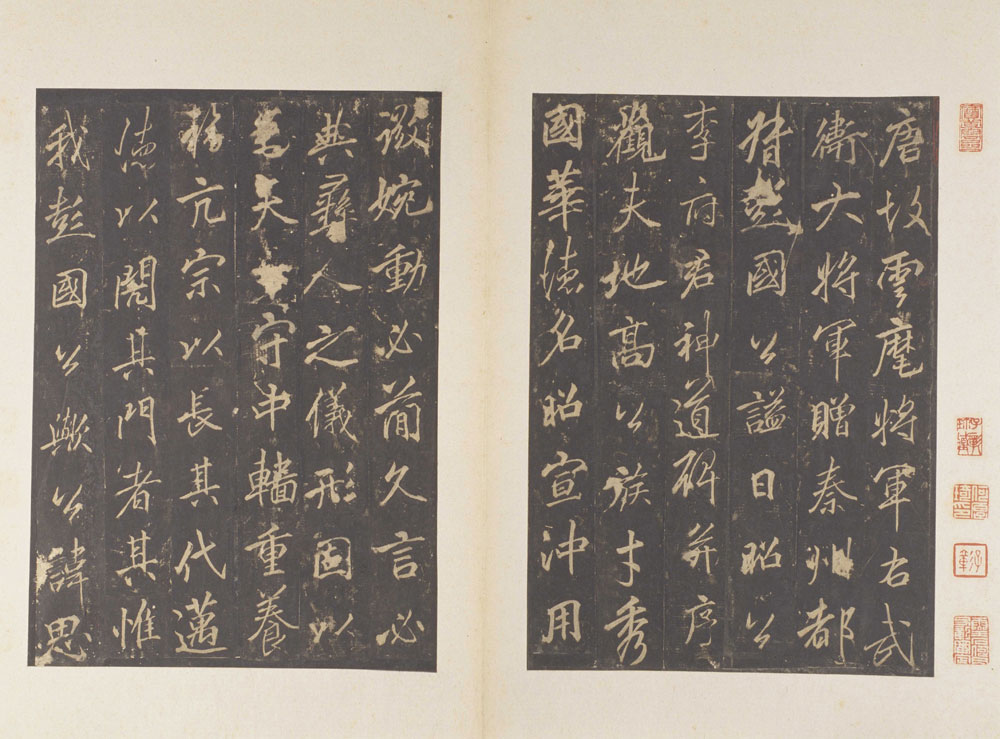 唐故雲麾將軍右武
衛大將軍贈秦州都
督彭國公謚曰昭公
李府君神道碑并序
觀夫地高公族才秀
國華德名昭宣沖用
微婉動必簡久言必
典彝人之儀形固以
為天守中轖重養
移亢宗以長其代邁
德以閎其門者其惟
我彭國公歟公諱思